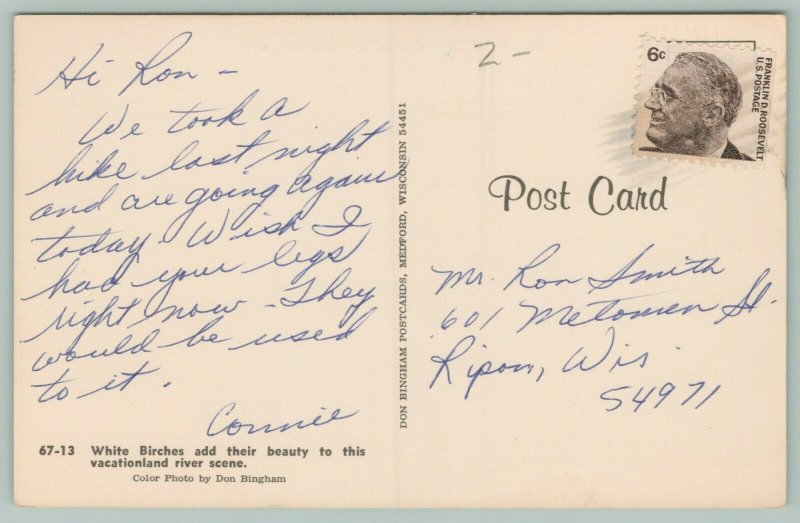 Hi Ron -
We took a
hike last night
and are going again
today. Wish I
had your legs
right now - They
would be used
to it.
Connie
67-13 White Birches add their beauty to this
vacationland river scene.
Color Photo by Don Bingham
DON BINGHAM POSTCARDS, MEDFORD, WISCONSIN 54451
2-
6c
FRANKLIN D. ROOSEVELT
U.S. POSTAGE
Post Card
Mr. Ron Smith
601 Metomen St.
Ripon, Wis.
54971